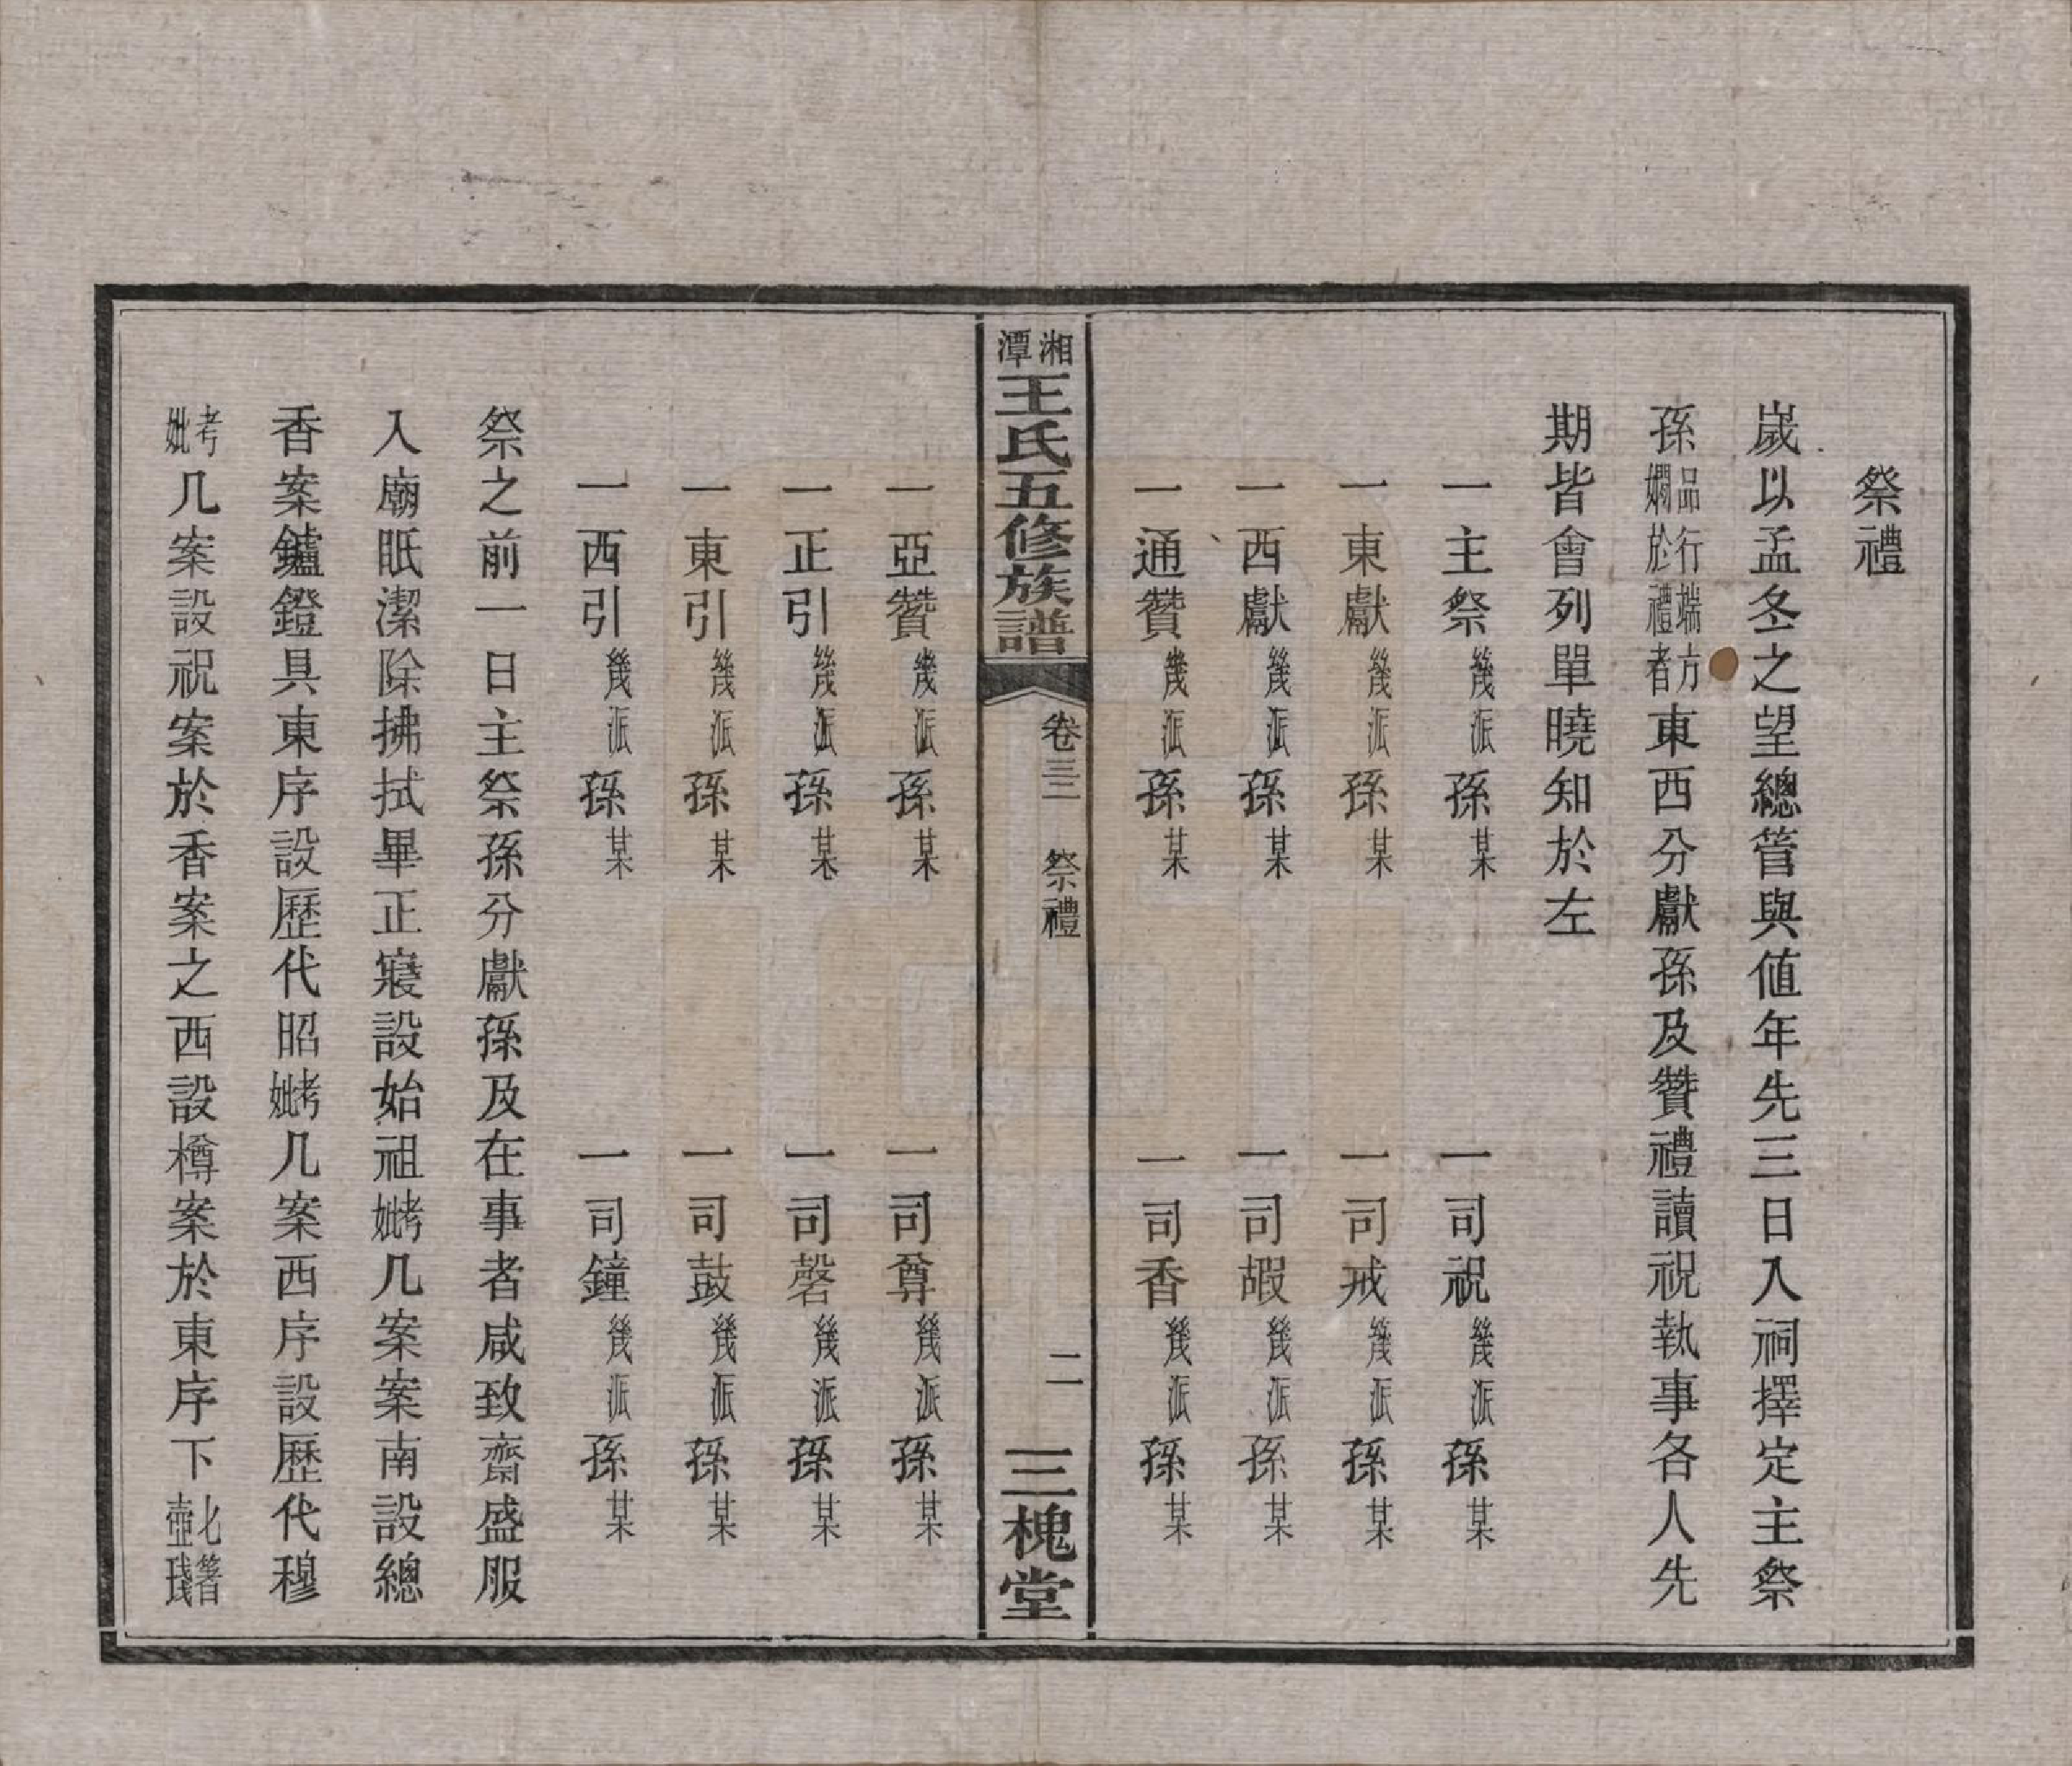 祭禮
嵗以孟冬之望總管與值年先三日入祠擇定主祭
孫品行端方嫻於禮者東西分獻孫及贊禮讀祝執事各人先
期皆會列單曉知於左
一主祭幾派孫某 一司祝幾派孫某
一東獻幾派孫某 一司戒幾派孫某
一西獻幾派孫某 一司嘏幾派孫某
一通贊幾派孫某 一司香幾派孫某
湘潭王氏五修族譜 卷三 祭禮 二 三槐堂
一亞贊幾派孫某 一司尊幾派孫某
一正引幾派孫某 一司磬幾派孫某
一東引幾派孫某 一司鼓幾派孫某
一西引幾派孫某 一司鐘幾派孫某
祭之前一日主祭孫分獻孫及在事者咸致齋盛服
入廟眂潔除拂拭畢正寢設始祖考妣几案案南設總
香案鑪鐙具東序設歷代昭考妣几案西序設歷代穆
考妣几案設祝案於香案之西設樽案於東序下匕箸壺琖